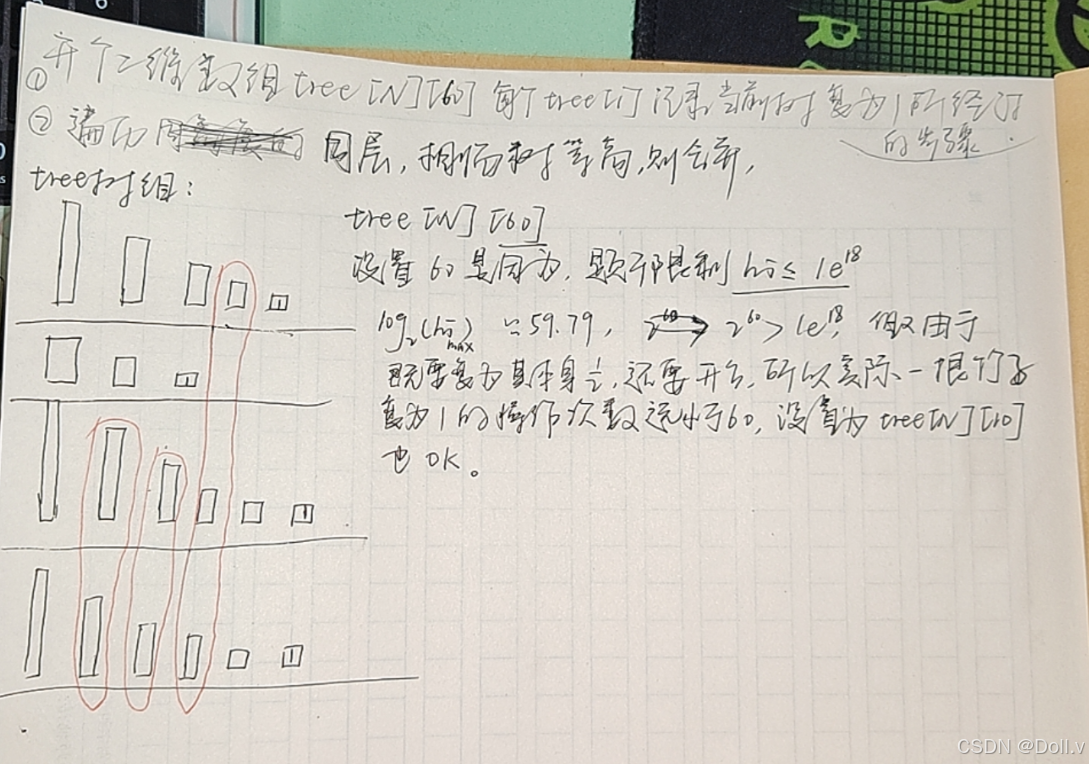 ① 开个二维数组 tree[N][60] 每个tree[i]记录当前树变为1所经过
的步骤.
② 遍历 同层,相临树等高,则合并,
tree树组:
tree[N][60]
设置60是因为,题干限制 hi ≤ 1e¹⁸
log₂(hi)max ≈ 59.79, 2⁶⁰ > 1e¹⁸, 但又由于
既要变为其本身½,还要开方,所以实际一根竹子
变为1的操作次数远小于60,设置为 tree[N][10]
也OK。
1
1
1
1
CSDN @Doll.v